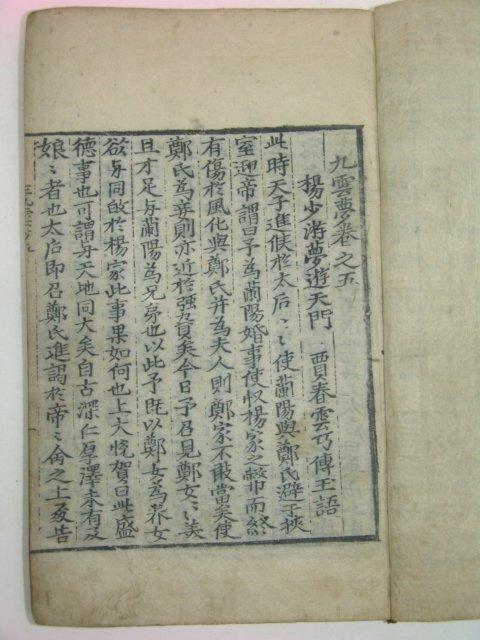 九雲夢卷之五
楊少游夢遊天門　賈春雲巧傳玉語
此時天子進候於太后〻〻使蘭陽與鄭氏避于挾
室迎帝謂曰予爲蘭陽婚事使収楊家之幣而終
有傷於風化與鄭氏并爲夫人則鄭家不敢當矣使
鄭氏爲妾則亦近於强負矣今日予召見鄭女〻〻美
且才足与蘭陽爲兄弟也以此予旣以鄭女爲養女
欲与同敀於楊家此事果如何也上大悅賀曰此盛
德事也可謂与天地同大矣自古深仁厚澤未有及
娘〻者也太后即召鄭氏進謁於帝〻命之上